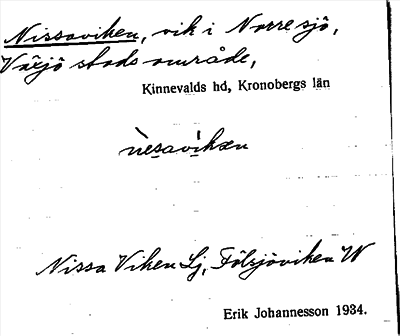 Nissaviken, vik i Norre sjö,
Växjö stads område,
Kinnevalds hd, Kronobergs län
nèsavíkæn
Nissa Viken Lj, Fölsjöviken W
Erik Johannesson 1934.